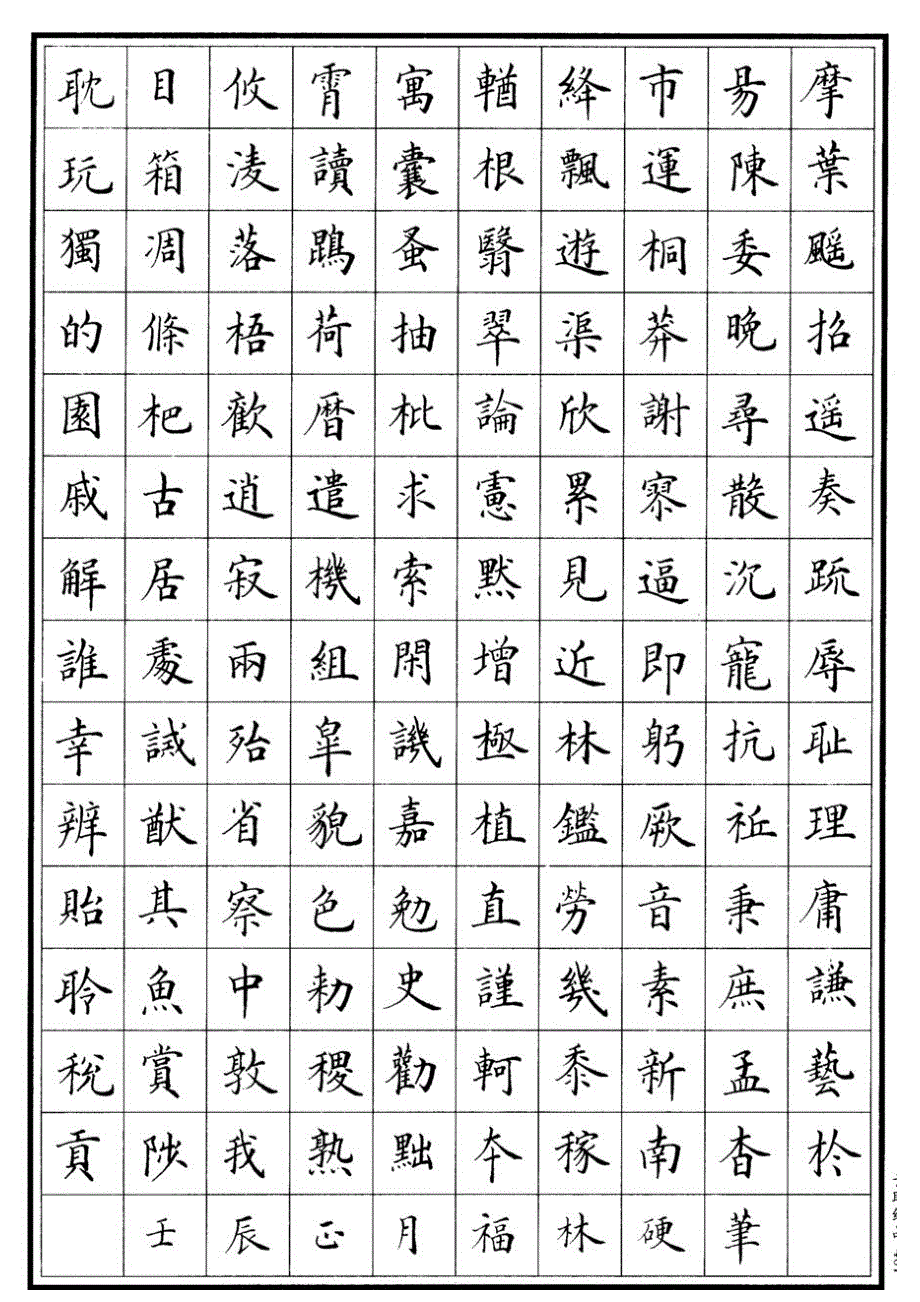 耽目攸霄寓輶絳市易摩
玩箱凌讀囊根飄運陳葉
獨凋落鵾蚤翳遊桐委颻
的條梧荷抽翠渠莽晚招
園杷歡曆枇論欣謝尋遥
戚古逍遣求慮累寥散奏
解居寂機索默見逼沉疏
誰處兩組閑增近即寵辱
幸誡殆皐譏極林躬抗耻
辨猷省貌嘉植鑑厥祗理
貽其察色勉直勞音秉庸
聆魚中勑史謹幾素庶謙
税賞敦稷勸軻黍新孟藝
貢陟我熟黜夲稼南杳於
壬辰正月福林硬筆